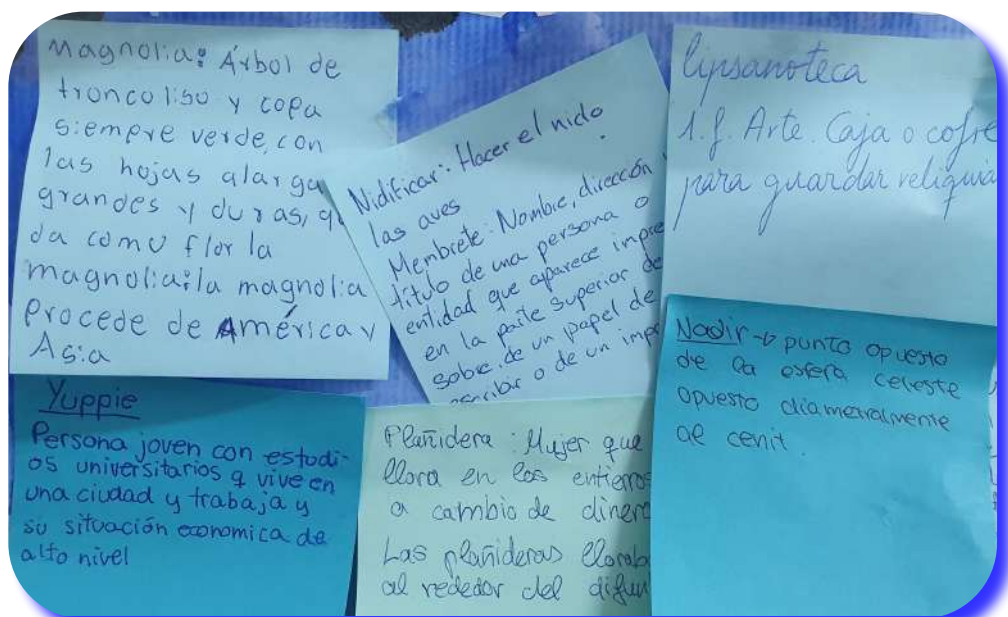 Magnolia: Árbol de
tronco liso y copa
siempre verde, con
las hojas alarga
grandes y duras, qu
da como flor la
magnolia: la magnolia
procede de América y
Asia
Nidificar: Hacer el nido
las aves
Membrete: Nombre, dirección
título de una persona o
entidad que aparece impre
en la parte superior de
sobre, de un papel de
escribir o de un impr
lipsanoteca
1. f. Arte. Caja o cofre
para guardar reliquia
Yuppie
Persona joven con estudi-
os universitarios q vive en
una ciudad y trabaja y
su situación economica de
alto nivel
Plañidera: Mujer que
llora en los entierros
a cambio de dinero
Las plañideras lloraba
al rededor del difun
Nadir → punto opuesto
de la esfera celeste
opuesto diametralmente
al cenit.